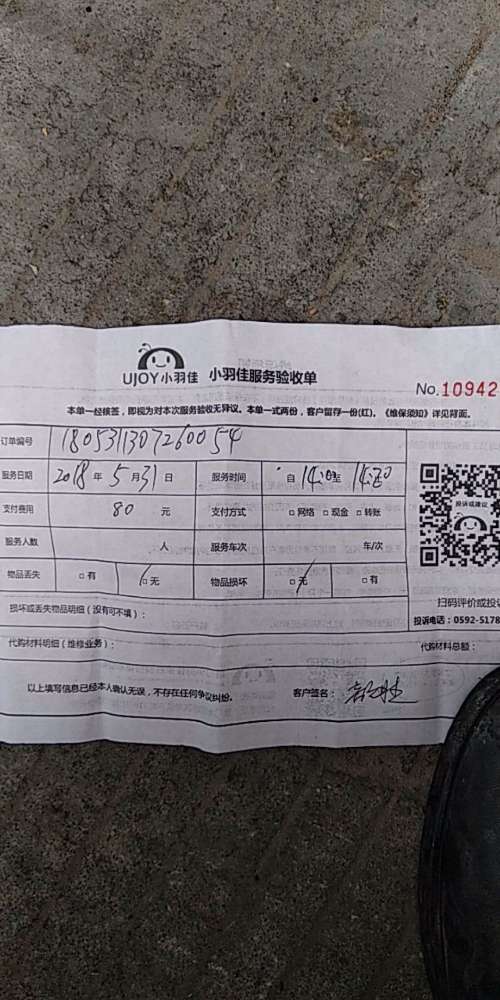 UJOY小羽佳 小羽佳服务验收单
No.10942
本单一经核签，即视为对本次服务验收无异议。本单一式两份，客户留存一份(红)。《维保须知》详见背面。
订单编号 1805311307260054
服务日期 2018年5月31日 服务时间 自14:20至
支付费用 80元 支付方式 □网络 □现金 □转账
服务人数 人 服务车次 车/次
物品丢失 □有 □无 物品损坏 □无 □有
投诉或建议
扫码评价或投
损坏或丢失物品明细（没有可不填）：
投诉电话：0592-5178
代购材料明细（维修业务）： 代购材料总额：
以上填写信息已经本人确认无误，不存在任何争议纠纷。 客户签名：